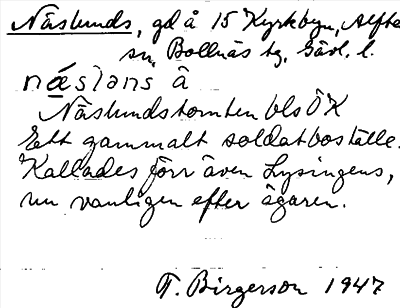 Näslunds, gd å 15 Kyrkbyn, Alfta
sn, Bollnäs tg. Gävl. l.
næslans â
Näslundstomten bls ÖK
Ett gammalt soldatboställe.
Kallades förr även Lysingens,
nu vanligen efter ägaren.
T. Birgerson 1947